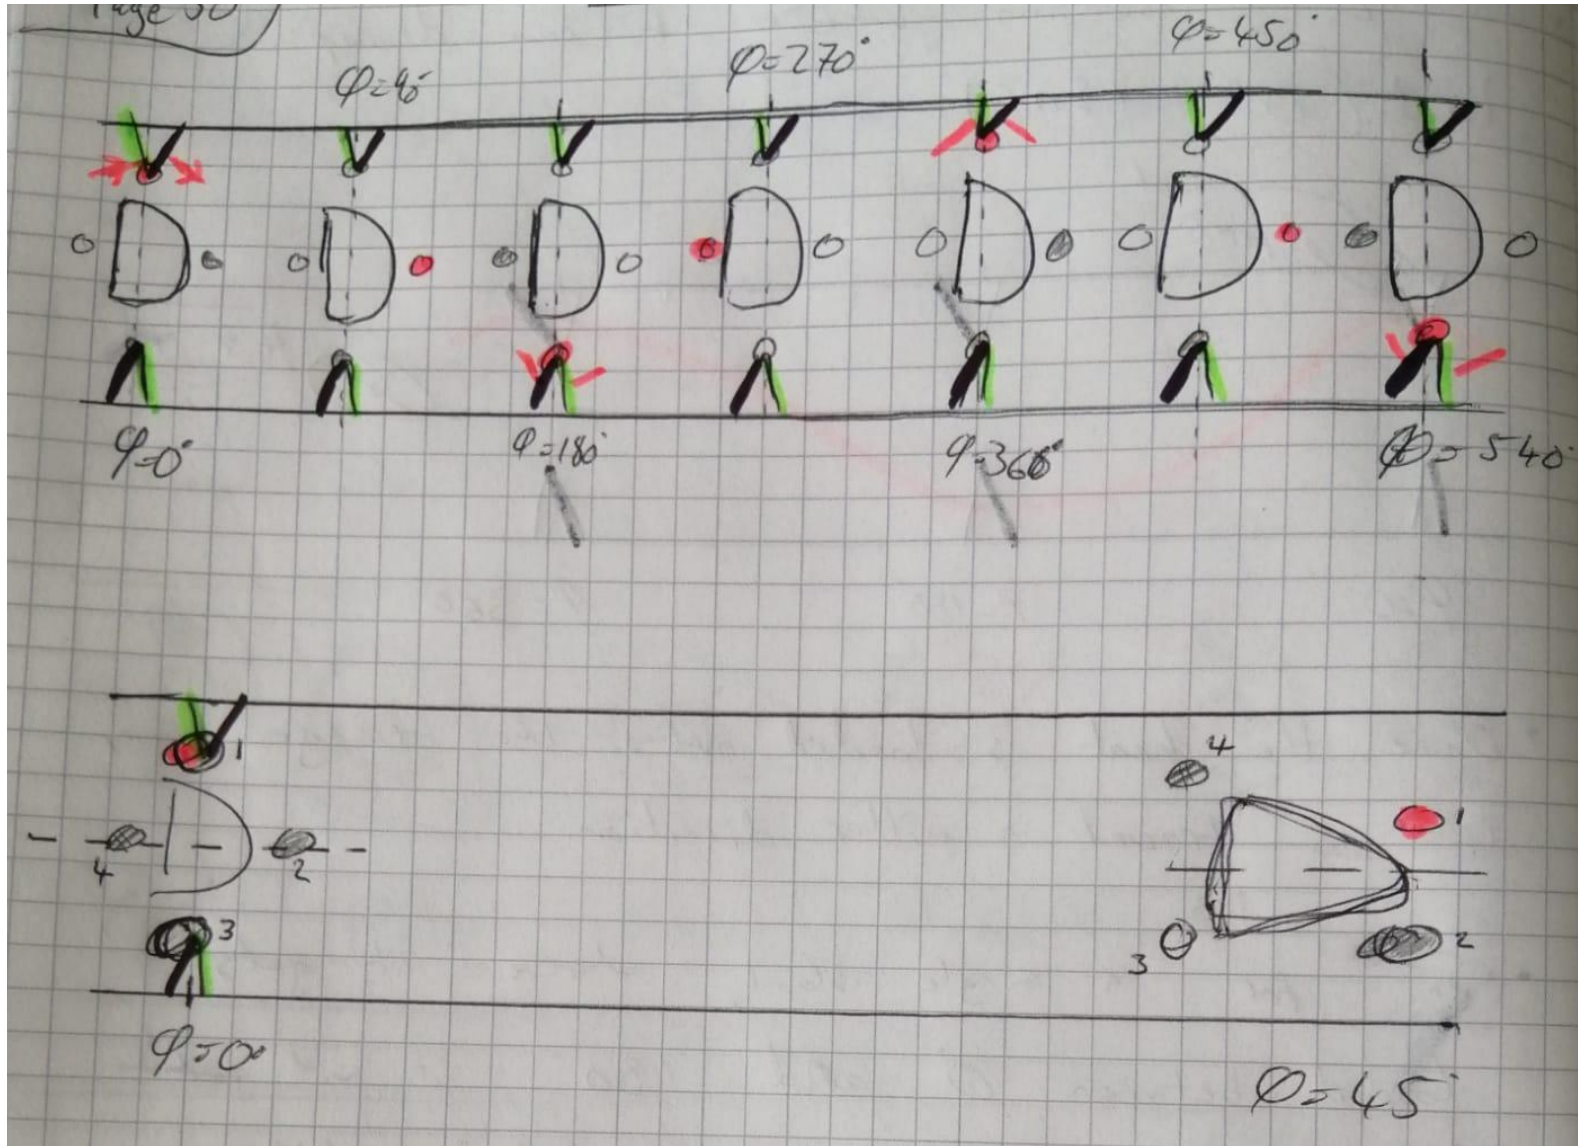 Page 30
φ=90°
φ=270°
φ=450°
φ=0°
φ=180°
φ=360°
φ=540°
1
4
2
3
φ=0°
4
1
3
2
φ=45°